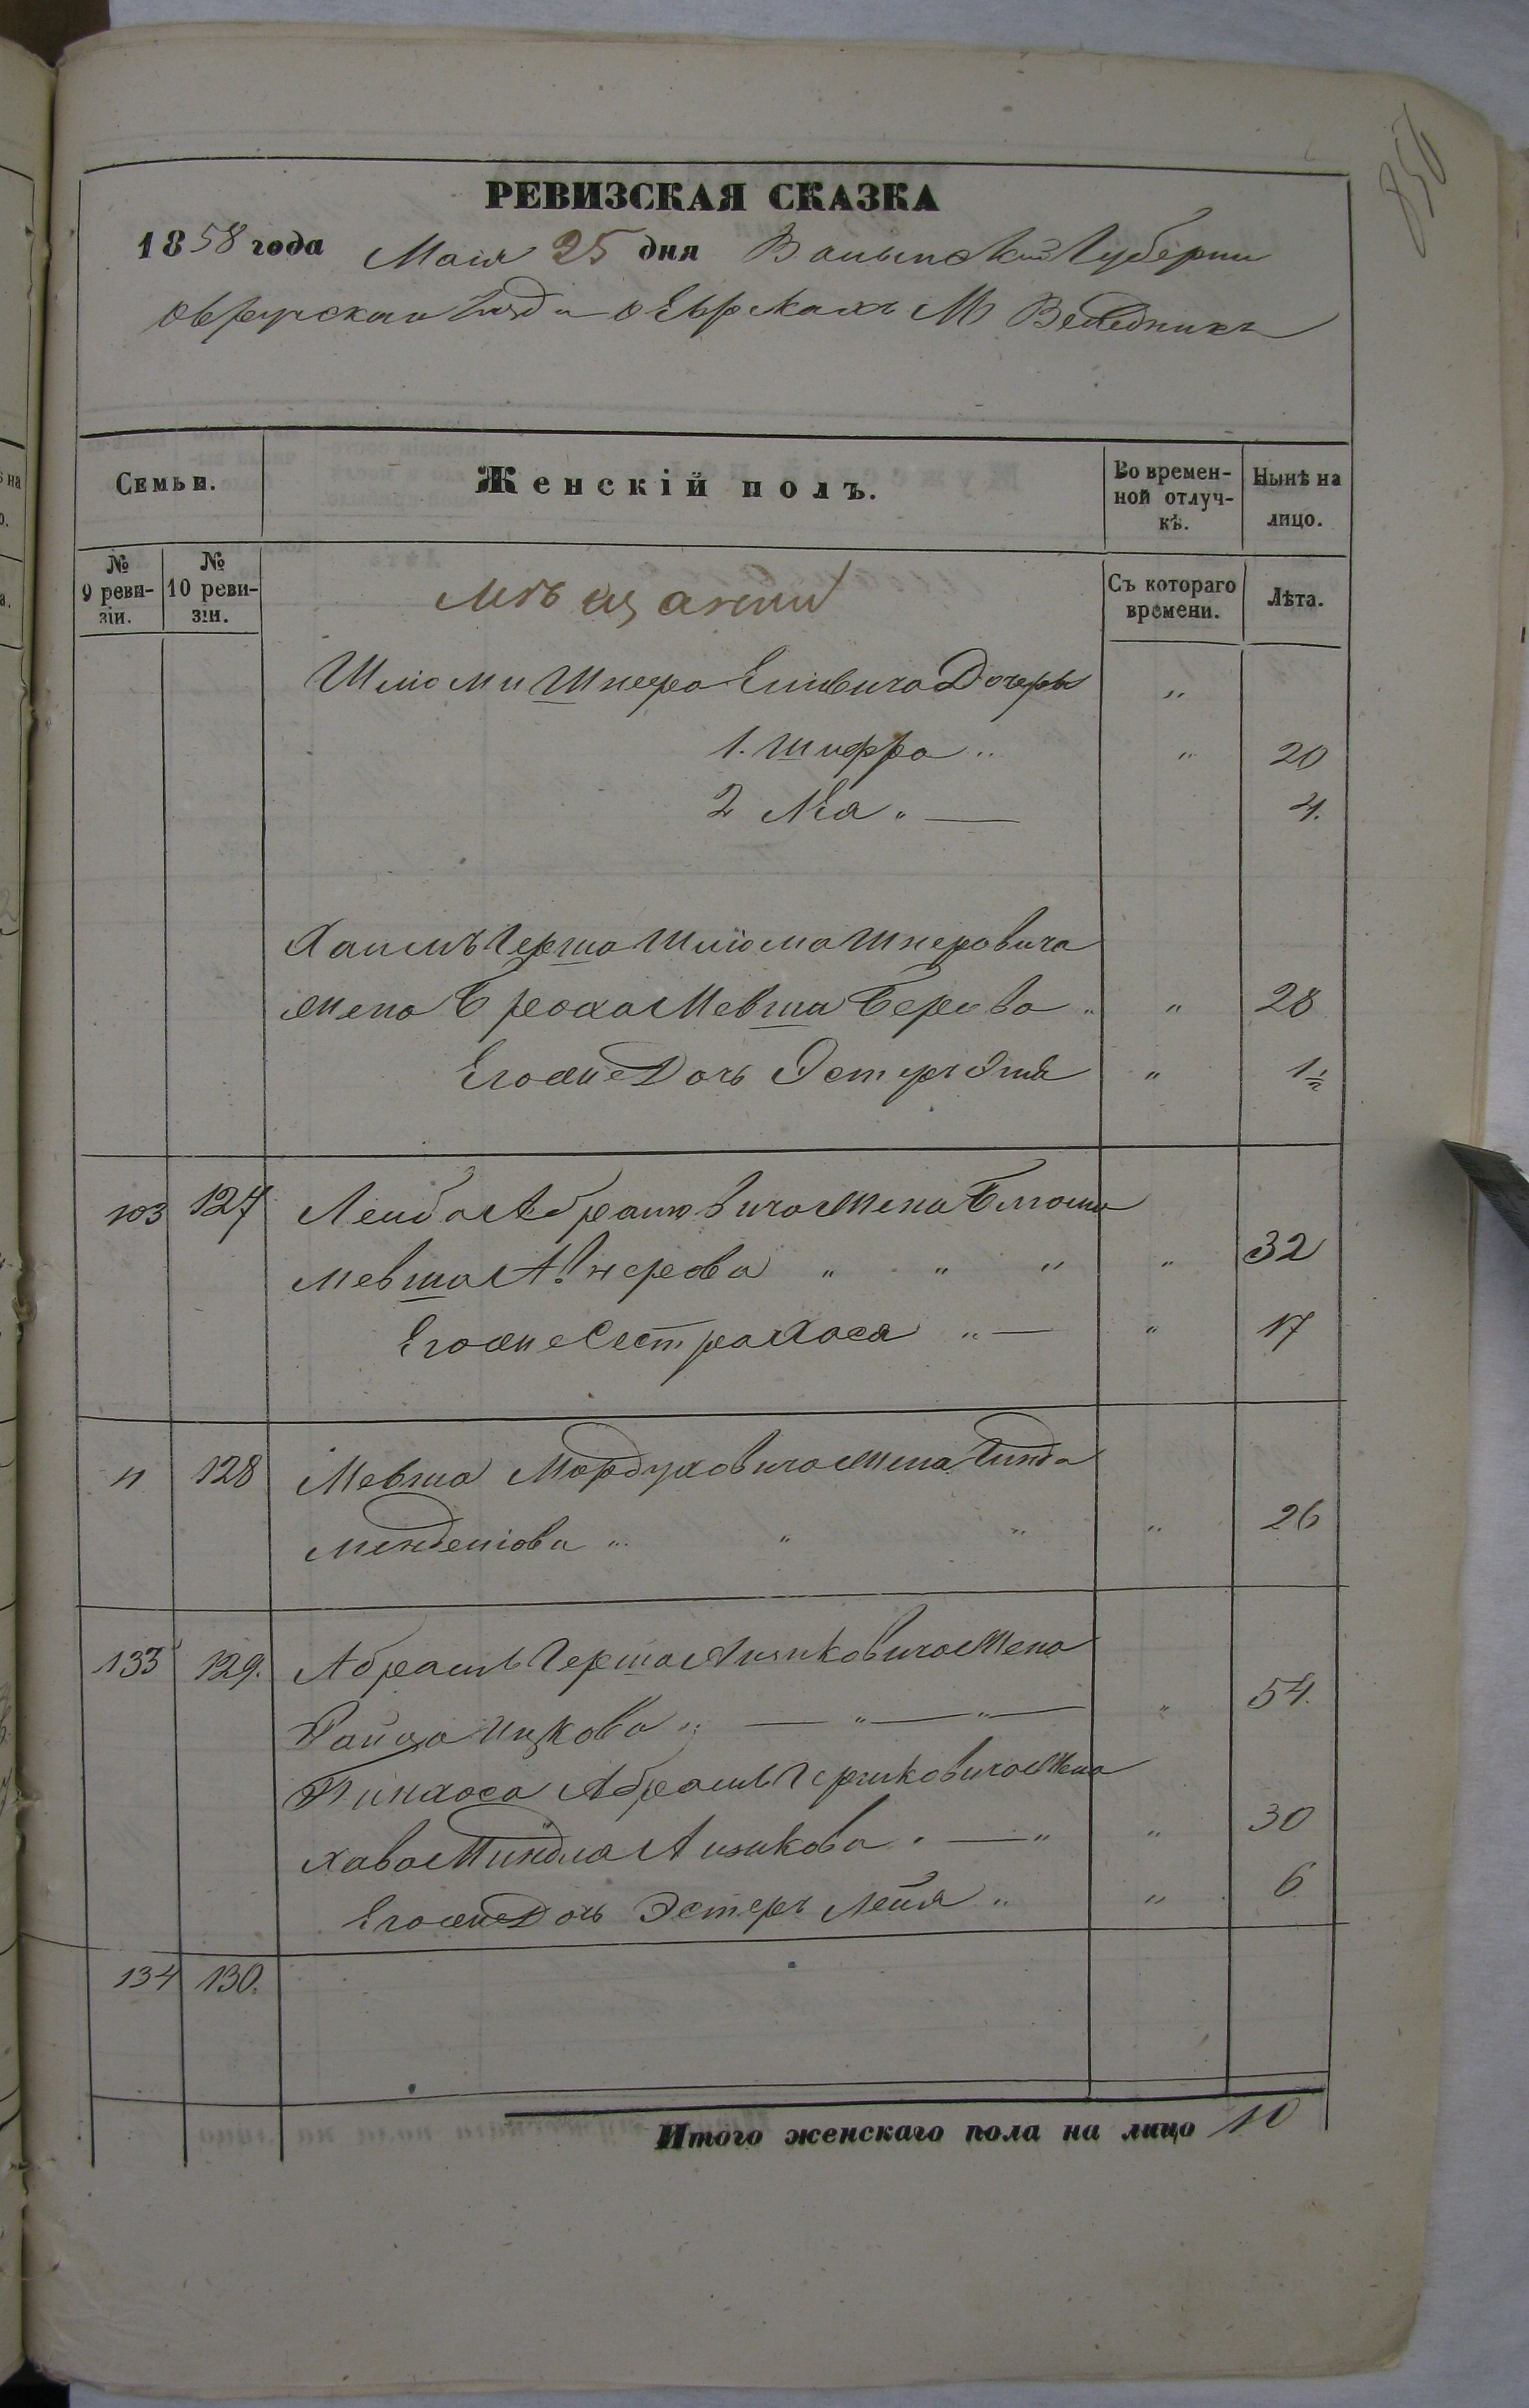 850
РЕВИЗСКАЯ СКАЗКА
1858 года Маія 25 дня Волынской Губерніи
Овручскаго Уезда о Евреяхъ М Веледникъ
Семьи. Женскій полъ. Во времен-ной отлуч-кѣ. Нынѣ на лицо.
№ 9 реви-зіи. № 10 реви-зіи. Мѣщане Съ котораго времени. Лѣта.
Шліоми Шнера Дочеры "
1. Шифра " " 20
2 Лѣа " — 4.
Хаимъ Герша Шліома Шнеровича
жена Броха Мевша Берова " " 28
Егоже Дочь Эстеръ " 1½
103 127 Лейба Абрамовича жена
Мевша " " " " 32
Егоже Сестра Хася " — " 17
" 128 Мевша Мордуховича жена Гинда
Менделіова " " " " 26
133 129. Абрамъ Герша Аизиковича жена
Райца Ицкова " — " — " — " 54.
Пинхоса Абрамъ Гершковича жена
Хава Миндла Аизикова " — " " 30
Егоже Дочь Эстеръ Лейя " " 6
134 130.
Итого женскаго пола на лицо 10